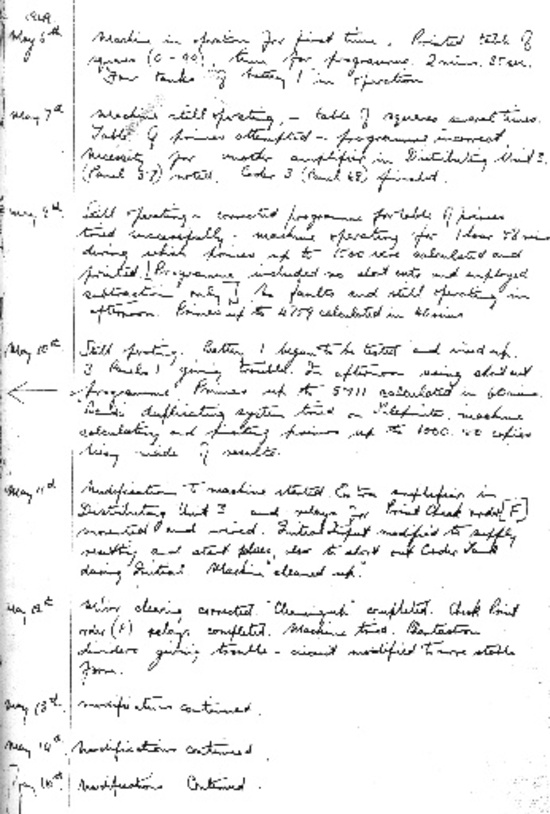 1949
May 6th Machine in operation for first time. Printed table of
squares (0-99), time for programme 2 mins. 35 sec.
Four tanks of battery 1 in operation
May 7th Machine still operating, - table of squares several times.
Table of primes attempted - programme incorrect
Necessity for another amplifier in Distributing Unit 3.
(Panel ) noted. Coder 3 (Panel ) finished.
May 9th Still operating - corrected programme for table of primes
tried successfully - machine operating for 1 hour mins
during which primes up to were calculated and
printed! [Programme included no short cuts and employed
subtraction only] No faults and still operating in
afternoon. Primes up to 4759 calculated in mins
May 10th Still operating. Battery 1 began to be tested and wired up.
3 Panels giving trouble. In afternoon using short cut
programme Primes up to calculated in 60 mins.
duplicating system tried on Teleprinter, machine
calculating and printing primes up to 1000. copies
being made of results.
May 11th Modification to machine started. Extra amplifier in
Distributing Unit 3 and relays for Print Check order [F]
mounted and wired. Initial Input modified to supply
resetting and start pulses, also to short out Coder Tank
during Initial. Machine "cleaned up".
May 12th Minor clearing corrected. "Cleaning up" completed. Check Print
order (F) relays completed. Machine tried.
dividers giving trouble - circuit modified to more stable
form.
May 13th. modifications continued.
May 14th modifications continued
May modifications Continued.